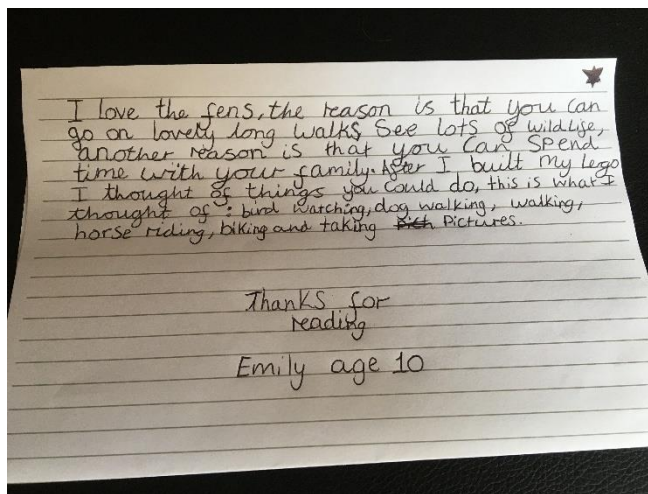 I love the fens, the reason is that you can
go on lovely long walks, See lots of wildlife,
another reason is that you can Spend
time with your family. After I built my Lego
I thought of things you could do, this is what I
thought of : bird watching, dog walking, walking,
horse riding, biking and taking Pictures.
Thanks for
reading
Emily age 10